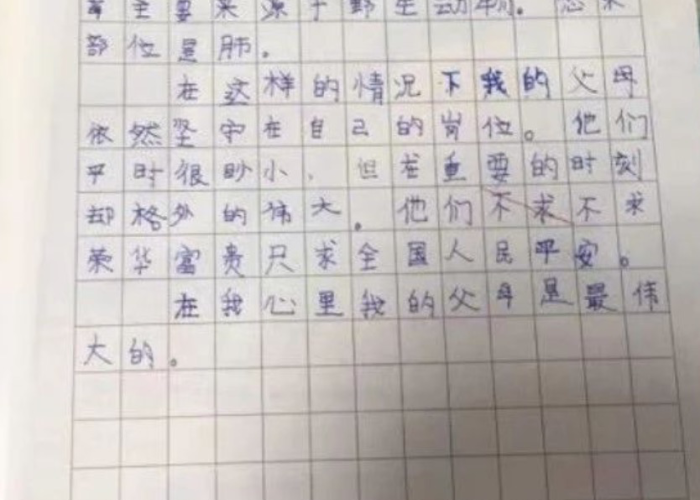 主要来源于野生动物。
部位是肺。
在这样的情况下我的父母
依然坚守在自己的岗位。他们
平时很眇小,但在重要的时刻
却格外的伟大。他们不求不求
荣华富贵只求全国人民平安。
在我心里我的父母是最伟
大的。